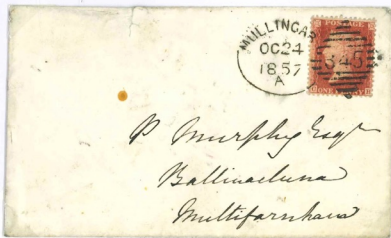 MULLINGAR
OC 24
1857
A
POSTAGE
345
P Murphy Esqr
Ballinacluna
Multifarnham